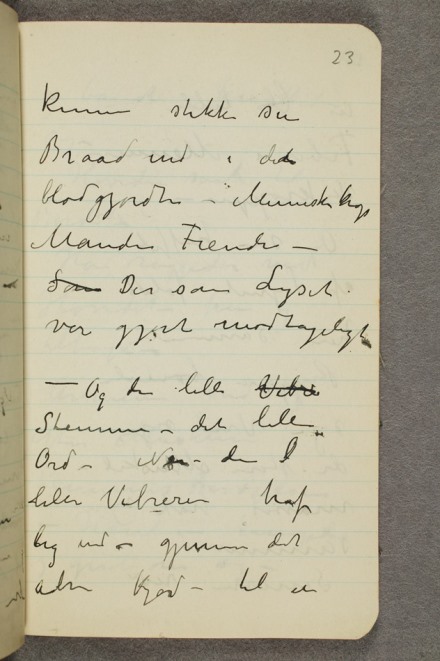 23
kunne stikke sin
Braad ind i det
blodgjordte – Menneske
Mandens Fiende –
Som Der som Lyset
var gjort modtageligt
– Og den lille Vibre
Stemme – det lille
Ord – den
lille Vibreren traf
ind – gjennem det
Kjød – til en